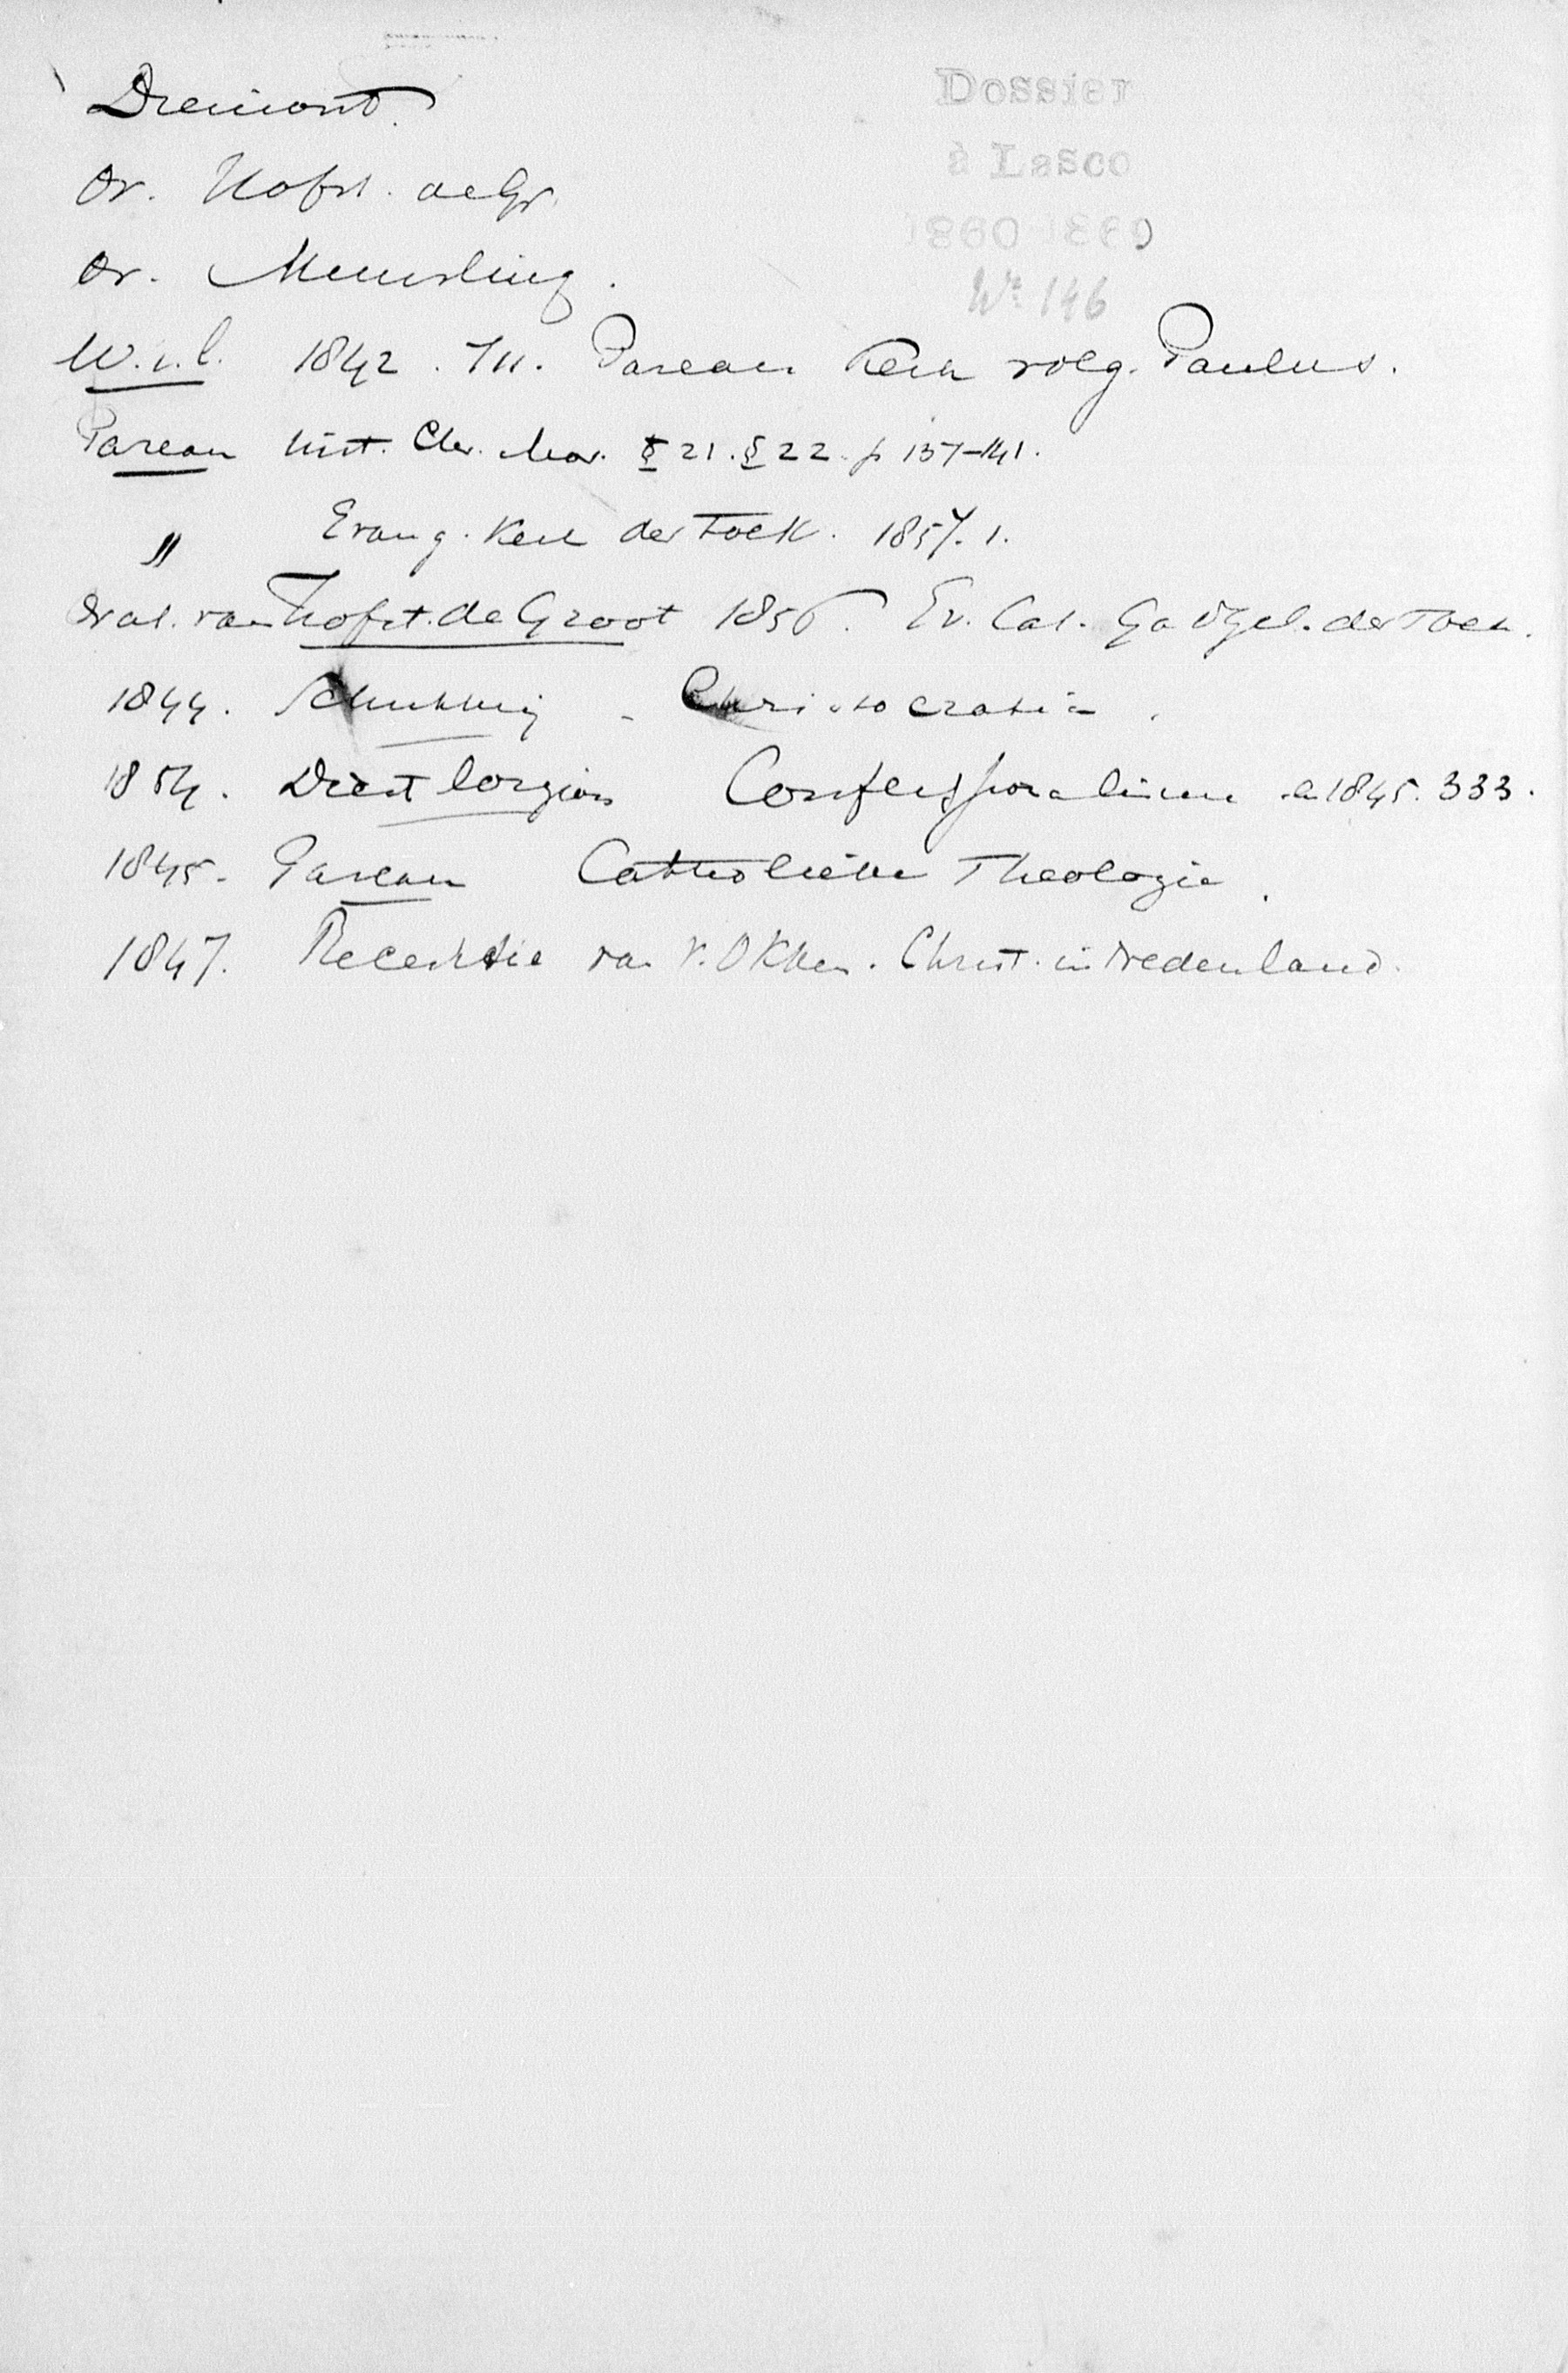 Dossier
à Lasco
1860 1860
No 146
Or. Hofst. de Gr.
Or. Muurling.
W. i. l. 1842. III. Pareau Kerk volg. Paulus.
Pareau Chr. Mor. § 21. § 22. p 137-141.
" Evang. Kerk der Toek. 1857. 1.
van Hofst. de Groot 1856. Ev. Cat. Godgel. der Toek.
1844. Christocratie.
1854. Diest Lorgion Confessionalisme 1845. 333.
1845. Pareau Catholieke Theologie.
1847. Recensie van v. Okken. Christ. in Nederland.